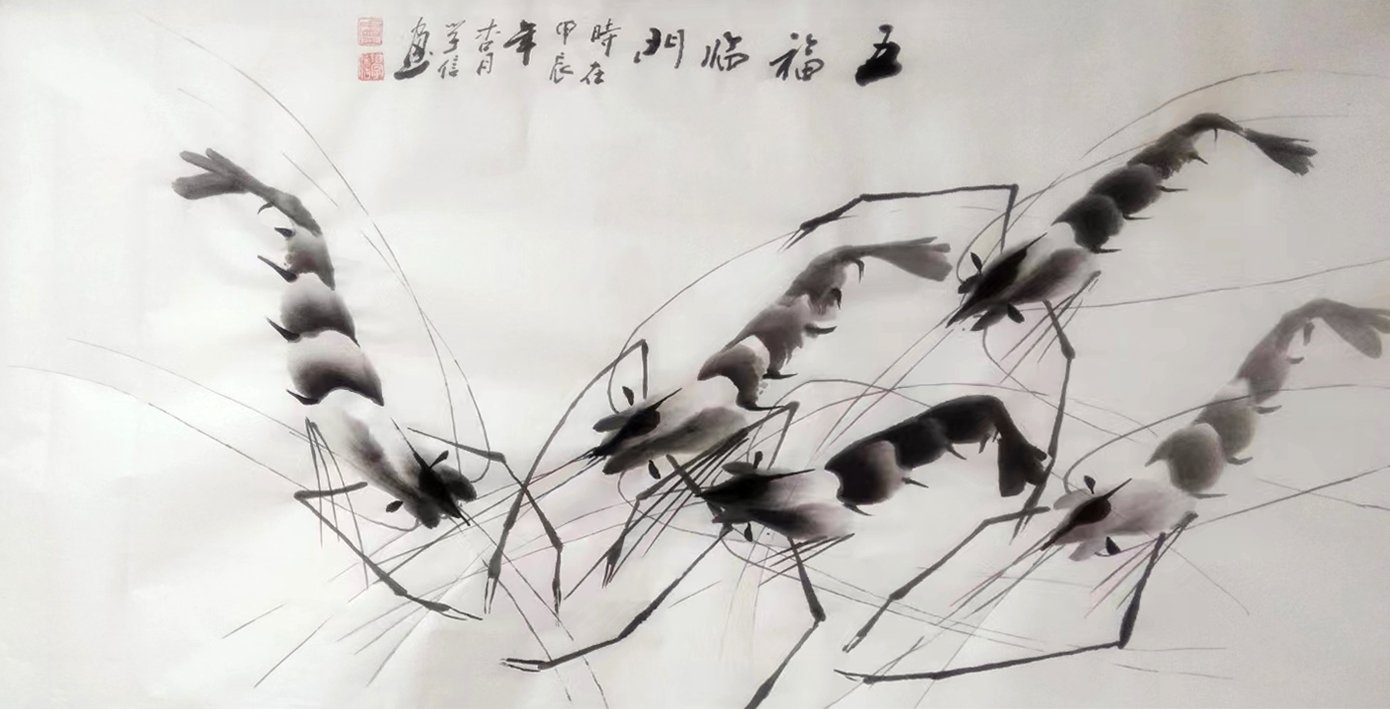 五福临门
時在
甲辰
年
杏月
学信
画